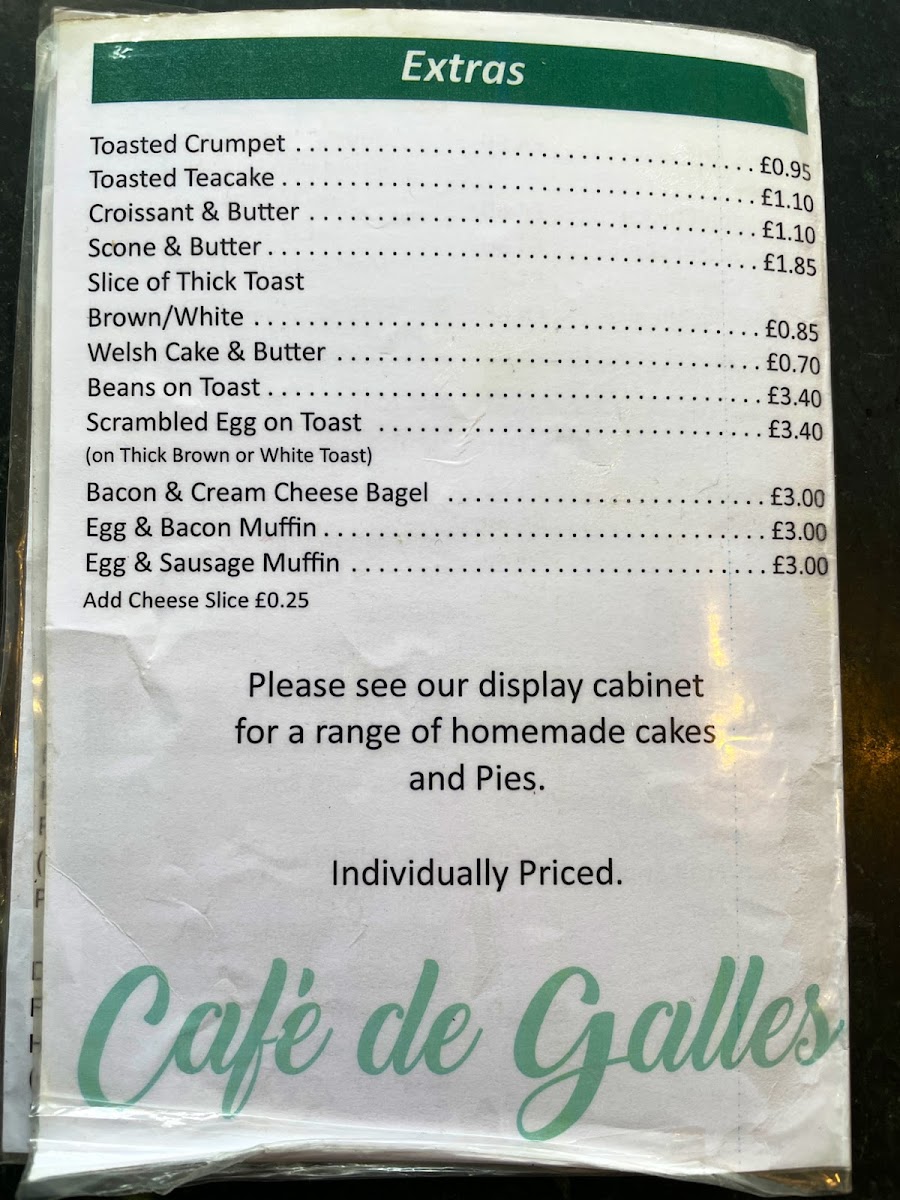 Extras
Toasted Crumpet . . . . . . . . . . . . . . . . . . . . . . . . . . . . . . . . . . . . . . . £0.95
Toasted Teacake . . . . . . . . . . . . . . . . . . . . . . . . . . . . . . . . . . . . . . . £1.10
Croissant & Butter . . . . . . . . . . . . . . . . . . . . . . . . . . . . . . . . . . . . . £1.10
Scone & Butter . . . . . . . . . . . . . . . . . . . . . . . . . . . . . . . . . . . . . . . . £1.85
Slice of Thick Toast
Brown/White . . . . . . . . . . . . . . . . . . . . . . . . . . . . . . . . . . . . . . . . . . £0.85
Welsh Cake & Butter . . . . . . . . . . . . . . . . . . . . . . . . . . . . . . . . . . . £0.70
Beans on Toast . . . . . . . . . . . . . . . . . . . . . . . . . . . . . . . . . . . . . . . . £3.40
Scrambled Egg on Toast . . . . . . . . . . . . . . . . . . . . . . . . . . . . . . . £3.40
(on Thick Brown or White Toast)
Bacon & Cream Cheese Bagel . . . . . . . . . . . . . . . . . . . . . . . . . . £3.00
Egg & Bacon Muffin . . . . . . . . . . . . . . . . . . . . . . . . . . . . . . . . . . . . £3.00
Egg & Sausage Muffin . . . . . . . . . . . . . . . . . . . . . . . . . . . . . . . . . . £3.00
Add Cheese Slice £0.25
Please see our display cabinet
for a range of homemade cakes
and Pies.
Individually Priced.
Café de Galles